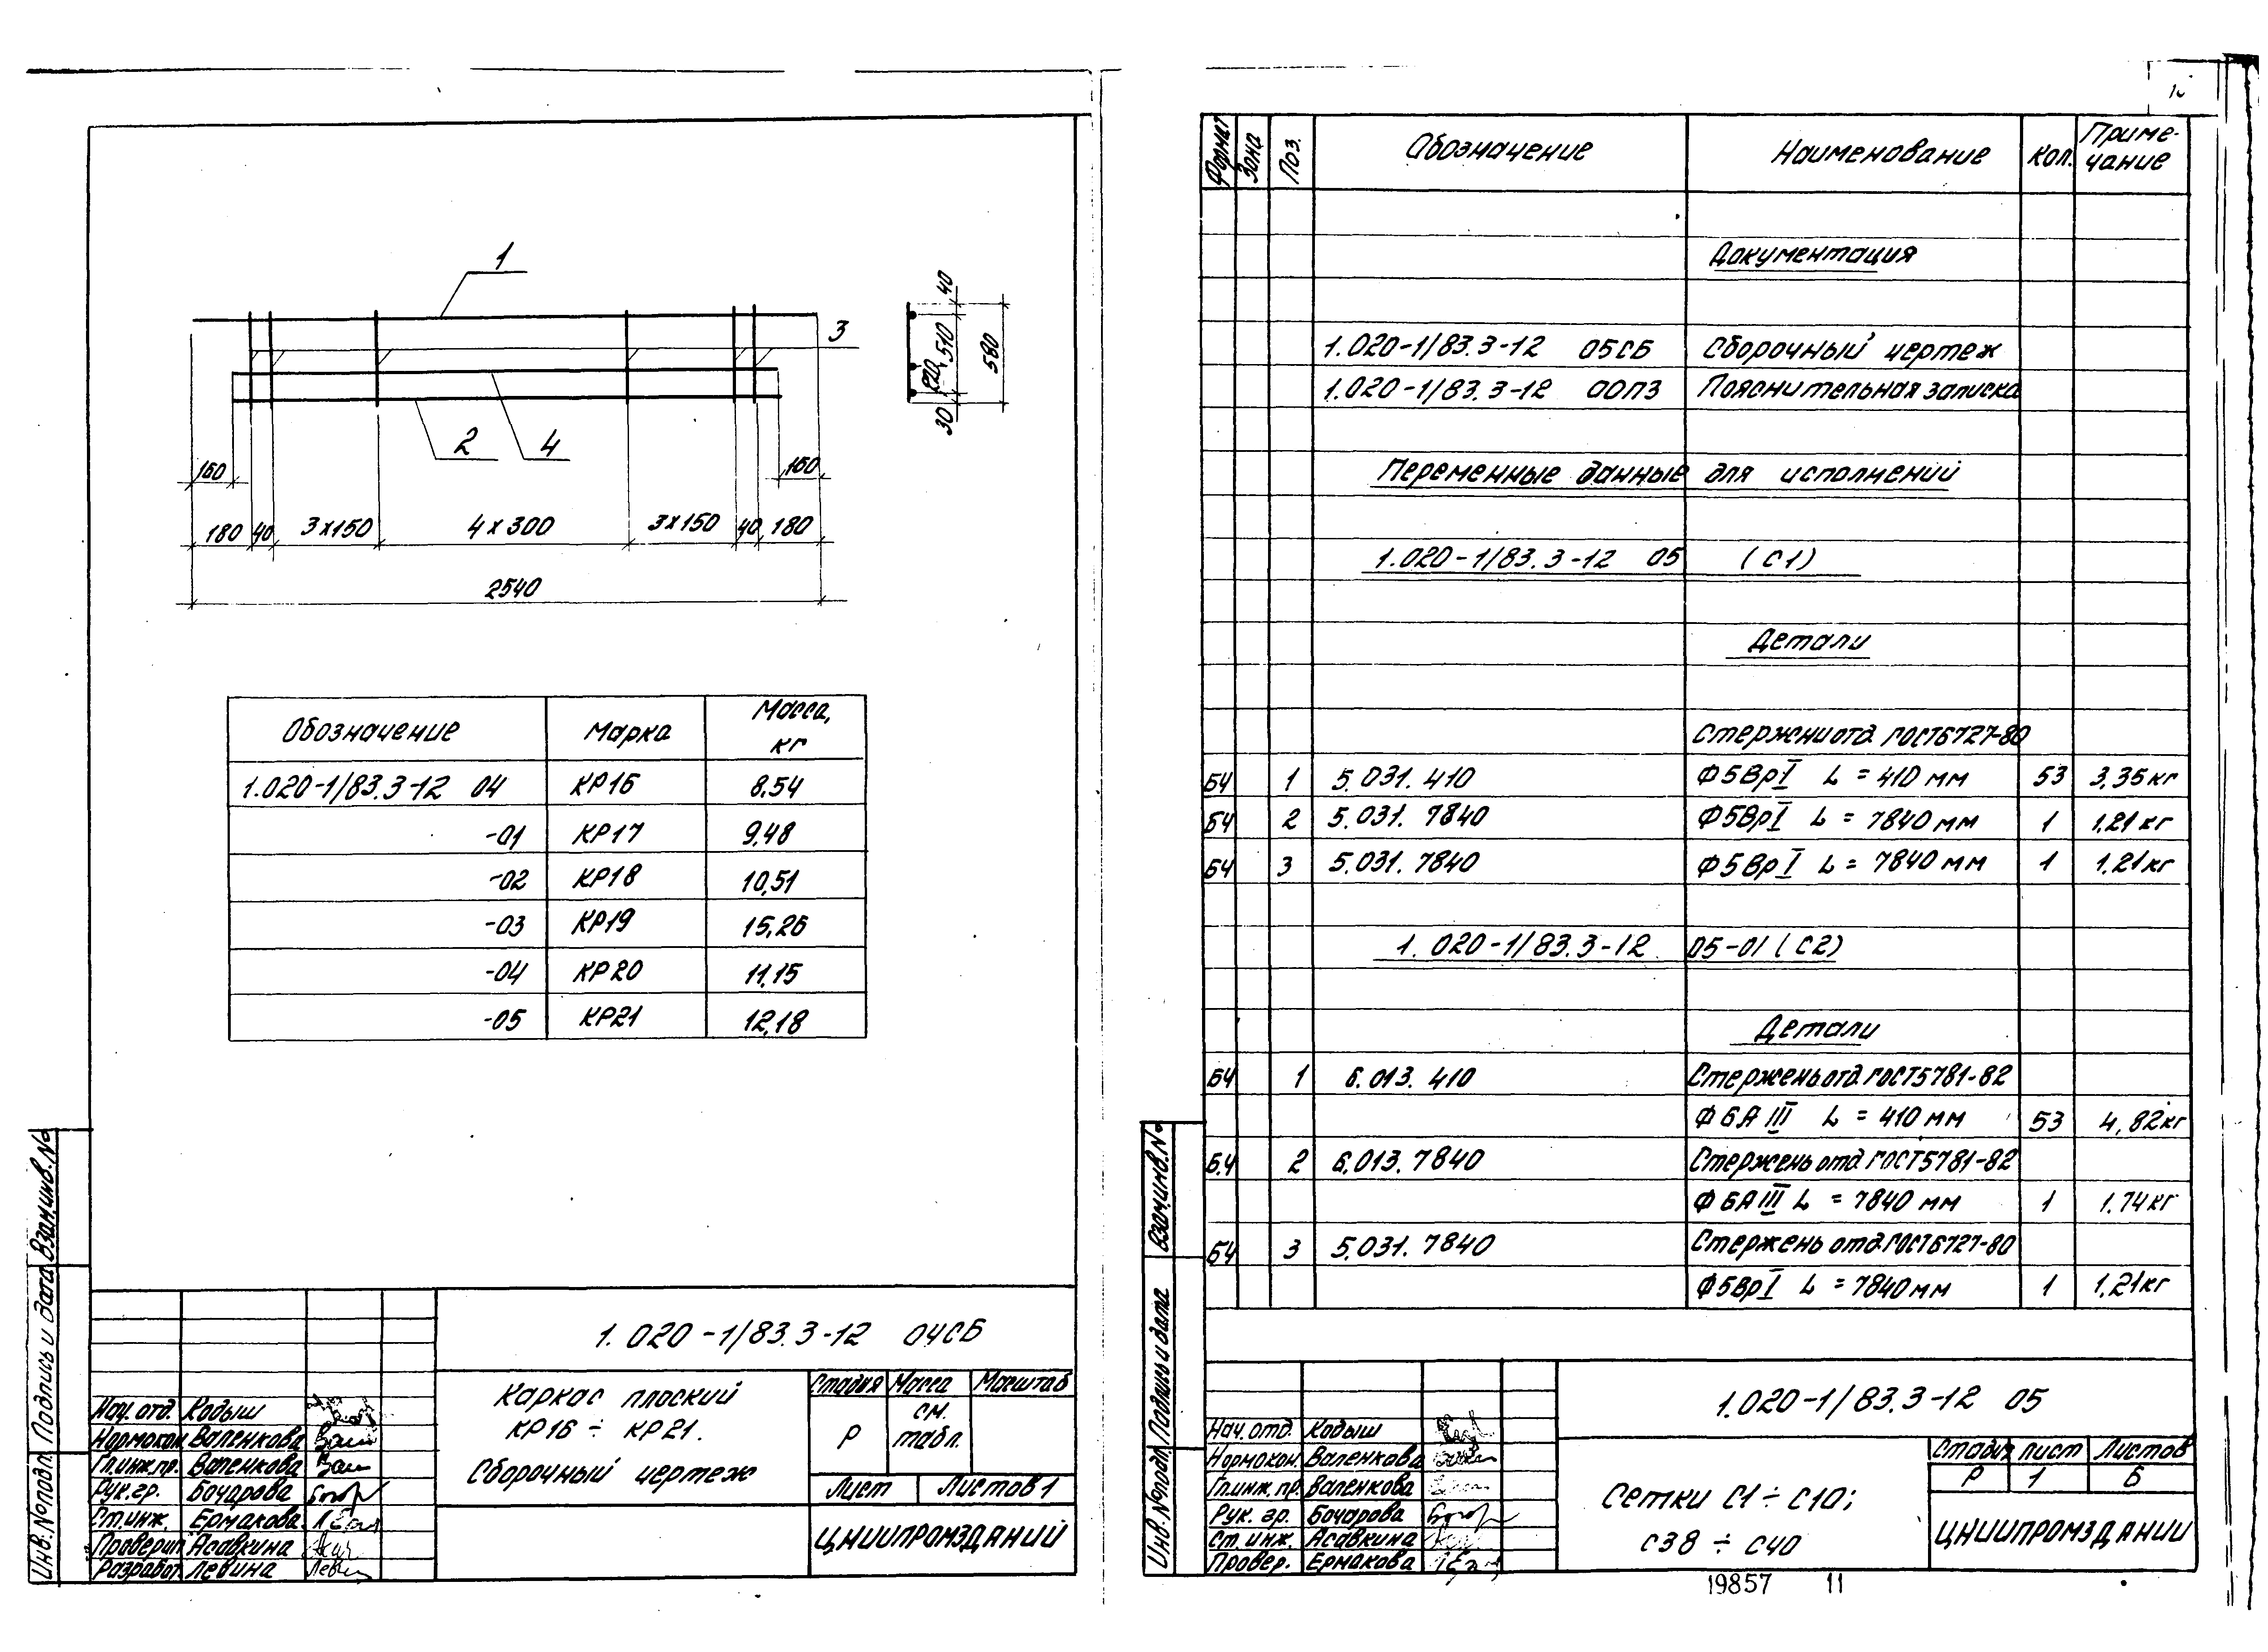 1
3
2
4
160
160
180 40 3х150 4х300 3х150 40 180
2540
40
510
580
30
Обозначение Марка Масса, кг
1.020-1/83.3-12 04 КР16 8,54
-01 КР17 9,48
-02 КР18 10,51
-03 КР19 15,26
-04 КР20 11,15
-05 КР21 12,18
Взам.инв.№
Подпись и дата
Инв.№подл.
1.020-1/83.3-12 04СБ
Каркас плоский
КР16 ÷ КР21.
Сборочный чертеж
Стадия Масса Масштаб
Р см. табл.
Лист Листов 1
ЦНИИПРОМЗДАНИЙ
Нач.отд. Кодыш
Нормокон. Валенкова
Гл.инж.пр. Валенкова
Рук.гр. Бочарова
Ст.инж. Ермакова
Проверил Асавкина
Разработ. Левина
Формат Зона Поз. Обозначение Наименование Кол. Приме-чание
Документация
1.020-1/83.3-12 05СБ Сборочный чертеж
1.020-1/83.3-12 00ПЗ Пояснительная записка
Переменные данные для исполнений
1.020-1/83.3-12 05 (С1)
Детали
Стержени отд. ГОСТ6727-80
БЧ 1 5.031.410 Ф5ВрI L = 410 мм 53 3,35кг
БЧ 2 5.031.7840 Ф5ВрI L = 7840 мм 1 1,21 кг
БЧ 3 5.031.7840 Ф5ВрI L = 7840 мм 1 1,21кг
1.020-1/83.3-12 05-01 (С2)
Детали
БЧ 1 6.013.410 Стержень отд. ГОСТ5781-82
Ф6АIII L = 410 мм 53 4,82кг
БЧ 2 6.013.7840 Стержень отд. ГОСТ5781-82
Ф6АIII L = 7840 мм 1 1.74кг
БЧ 3 5.031.7840 Стержень отд. ГОСТ6727-80
Ф5ВрI L = 7840мм 1 1,21кг
Взам.инв.№
Подпись и дата
Инв.№подл.
1.020-1/83.3-12 05
Нач.отд. Кодыш
Нормокон. Валенкова
Гл.инж.пр. Валенкова
Рук. гр. Бочарова
Ст.инж. Асавкина
Провер. Ермакова
Сетки С1÷С10;
С38 ÷ С40
Стадия Лист Листов
Р 1 6
ЦНИИПРОМЗДАНИИ
19857 11